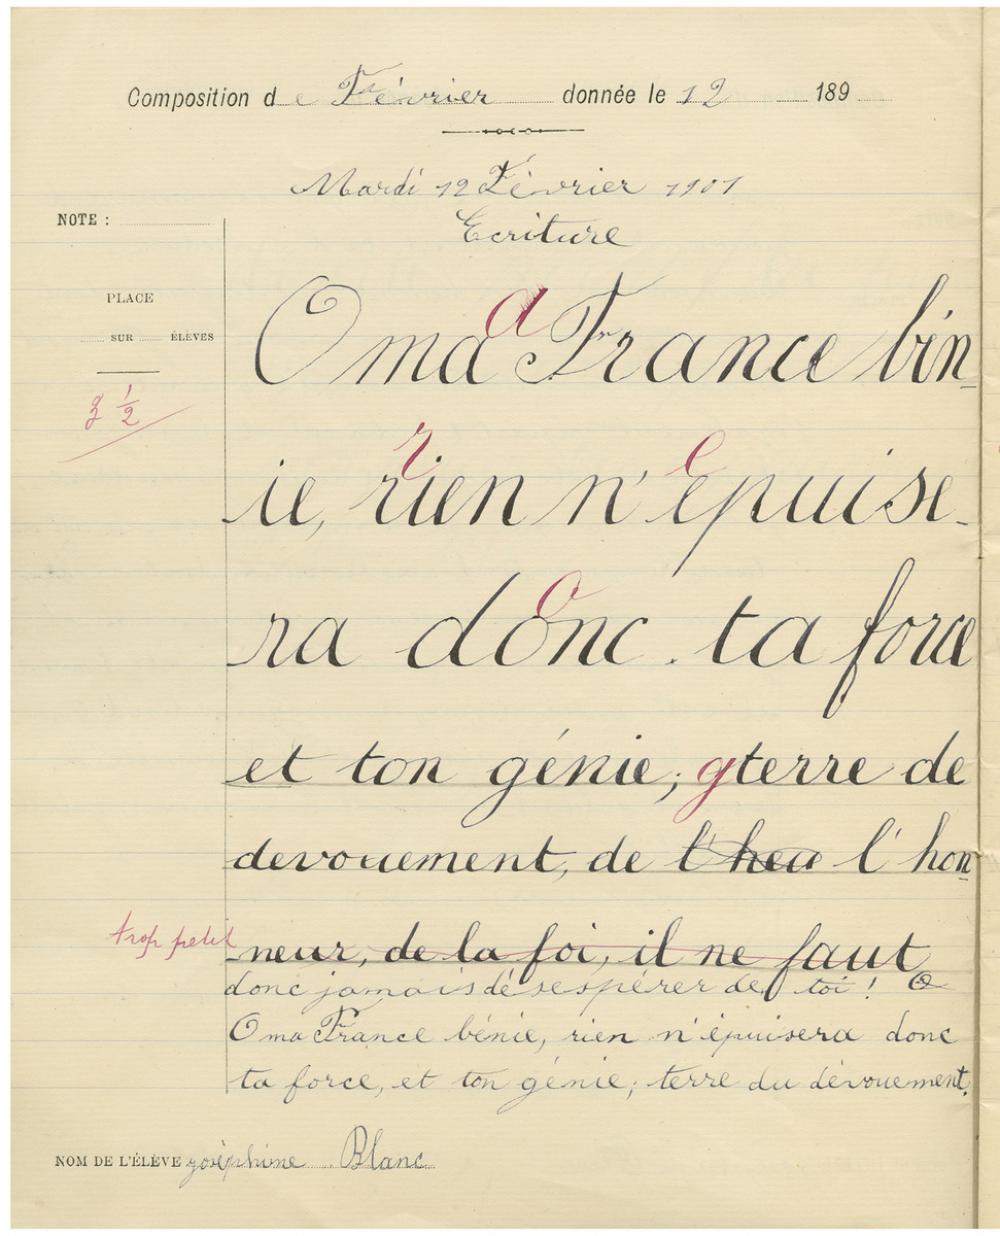 Composition de Février donnée le 12 189
Mardi 12 Février 1901
NOTE :
Ecriture
PLACE
SUR ÉLÈVES
3 ½
a
O ma France bén-
r e
ie, rien n'épuise-
o
ra donc. ta force
et ton génie; g terre de
devouement, de l'heu l'hon-
trop petit
neur, de la foi, il ne faut
donc jamais désespérer de toi! O
O ma France bénie, rien n'épuisera donc
ta force, et ton génie; terre du dévouement.
NOM DE L'ÉLÈVE Joséphine Blanc